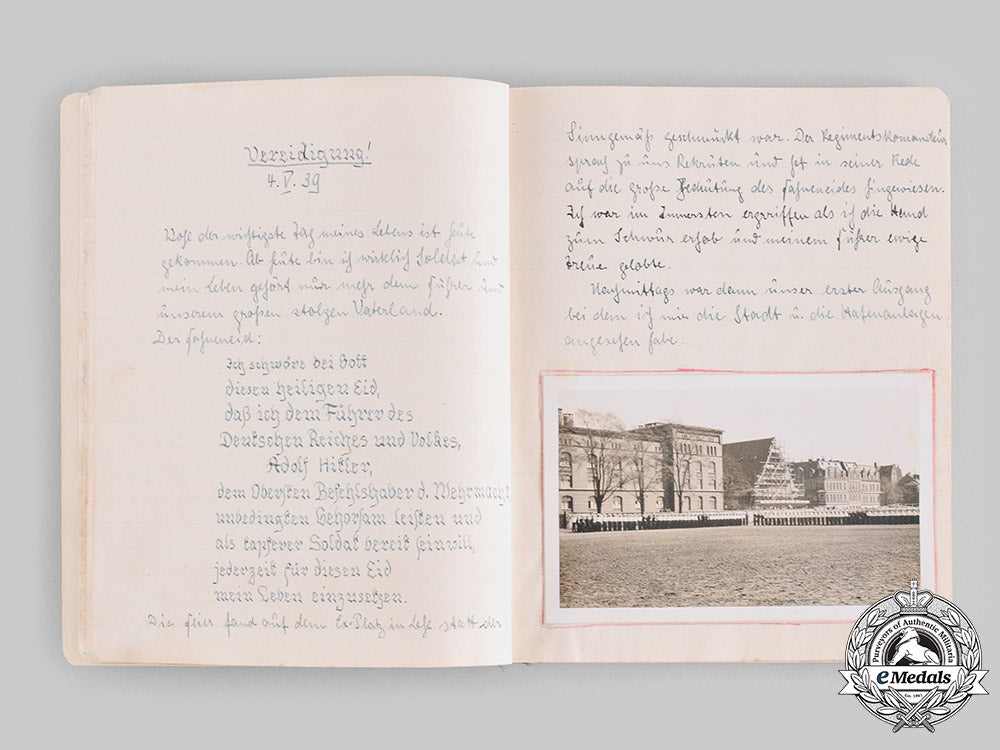 Vereidigung!
4. V. 39
Wohl der wichtigste Tag meines Lebens ist heute
gekommen. Ab heute bin ich wirklich Soldat und
mein Leben gehört nur mehr dem Führer und
unserem großen stolzen Vaterland.
Der Fahneneid:
Ich schwöre bei Gott
diesen heiligen Eid,
daß ich dem Führer des
Deutschen Reiches und Volkes,
Adolf Hitler,
dem Obersten Befehlshaber d. Wehrmacht
unbedingten Gehorsam leisten und
als tapferer Soldat bereit sein will,
jederzeit für diesen Eid
mein Leben einzusetzen.
Die Feier fand auf dem Ex-Platz in Lehe statt der
Sinngemäß geschmückt war. Der Regimentskomandeur
sprach zu uns Rekruten und hat in seiner Rede
auf die große Bedeutung des Fahneneides hingewiesen.
Ich war im Innersten ergriffen als ich die Hand
zum Schwur erhob und meinem Führer ewige
Treue gelobte.
Nachmittags war dann unser erster Ausgang
bei dem ich mir die Stadt u. die Hafenanlagen
angesehen habe.
Purveyors of Authentic Militaria
eMedals